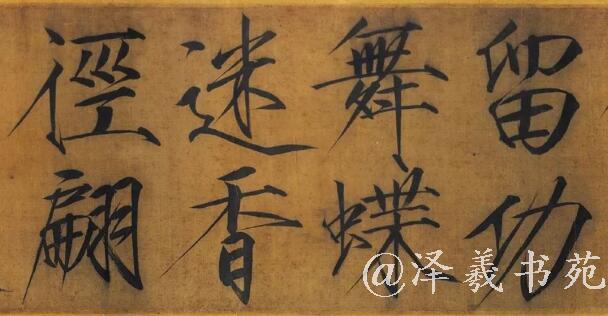 留功
舞蝶
迷香
徑翩
@泽羲书苑